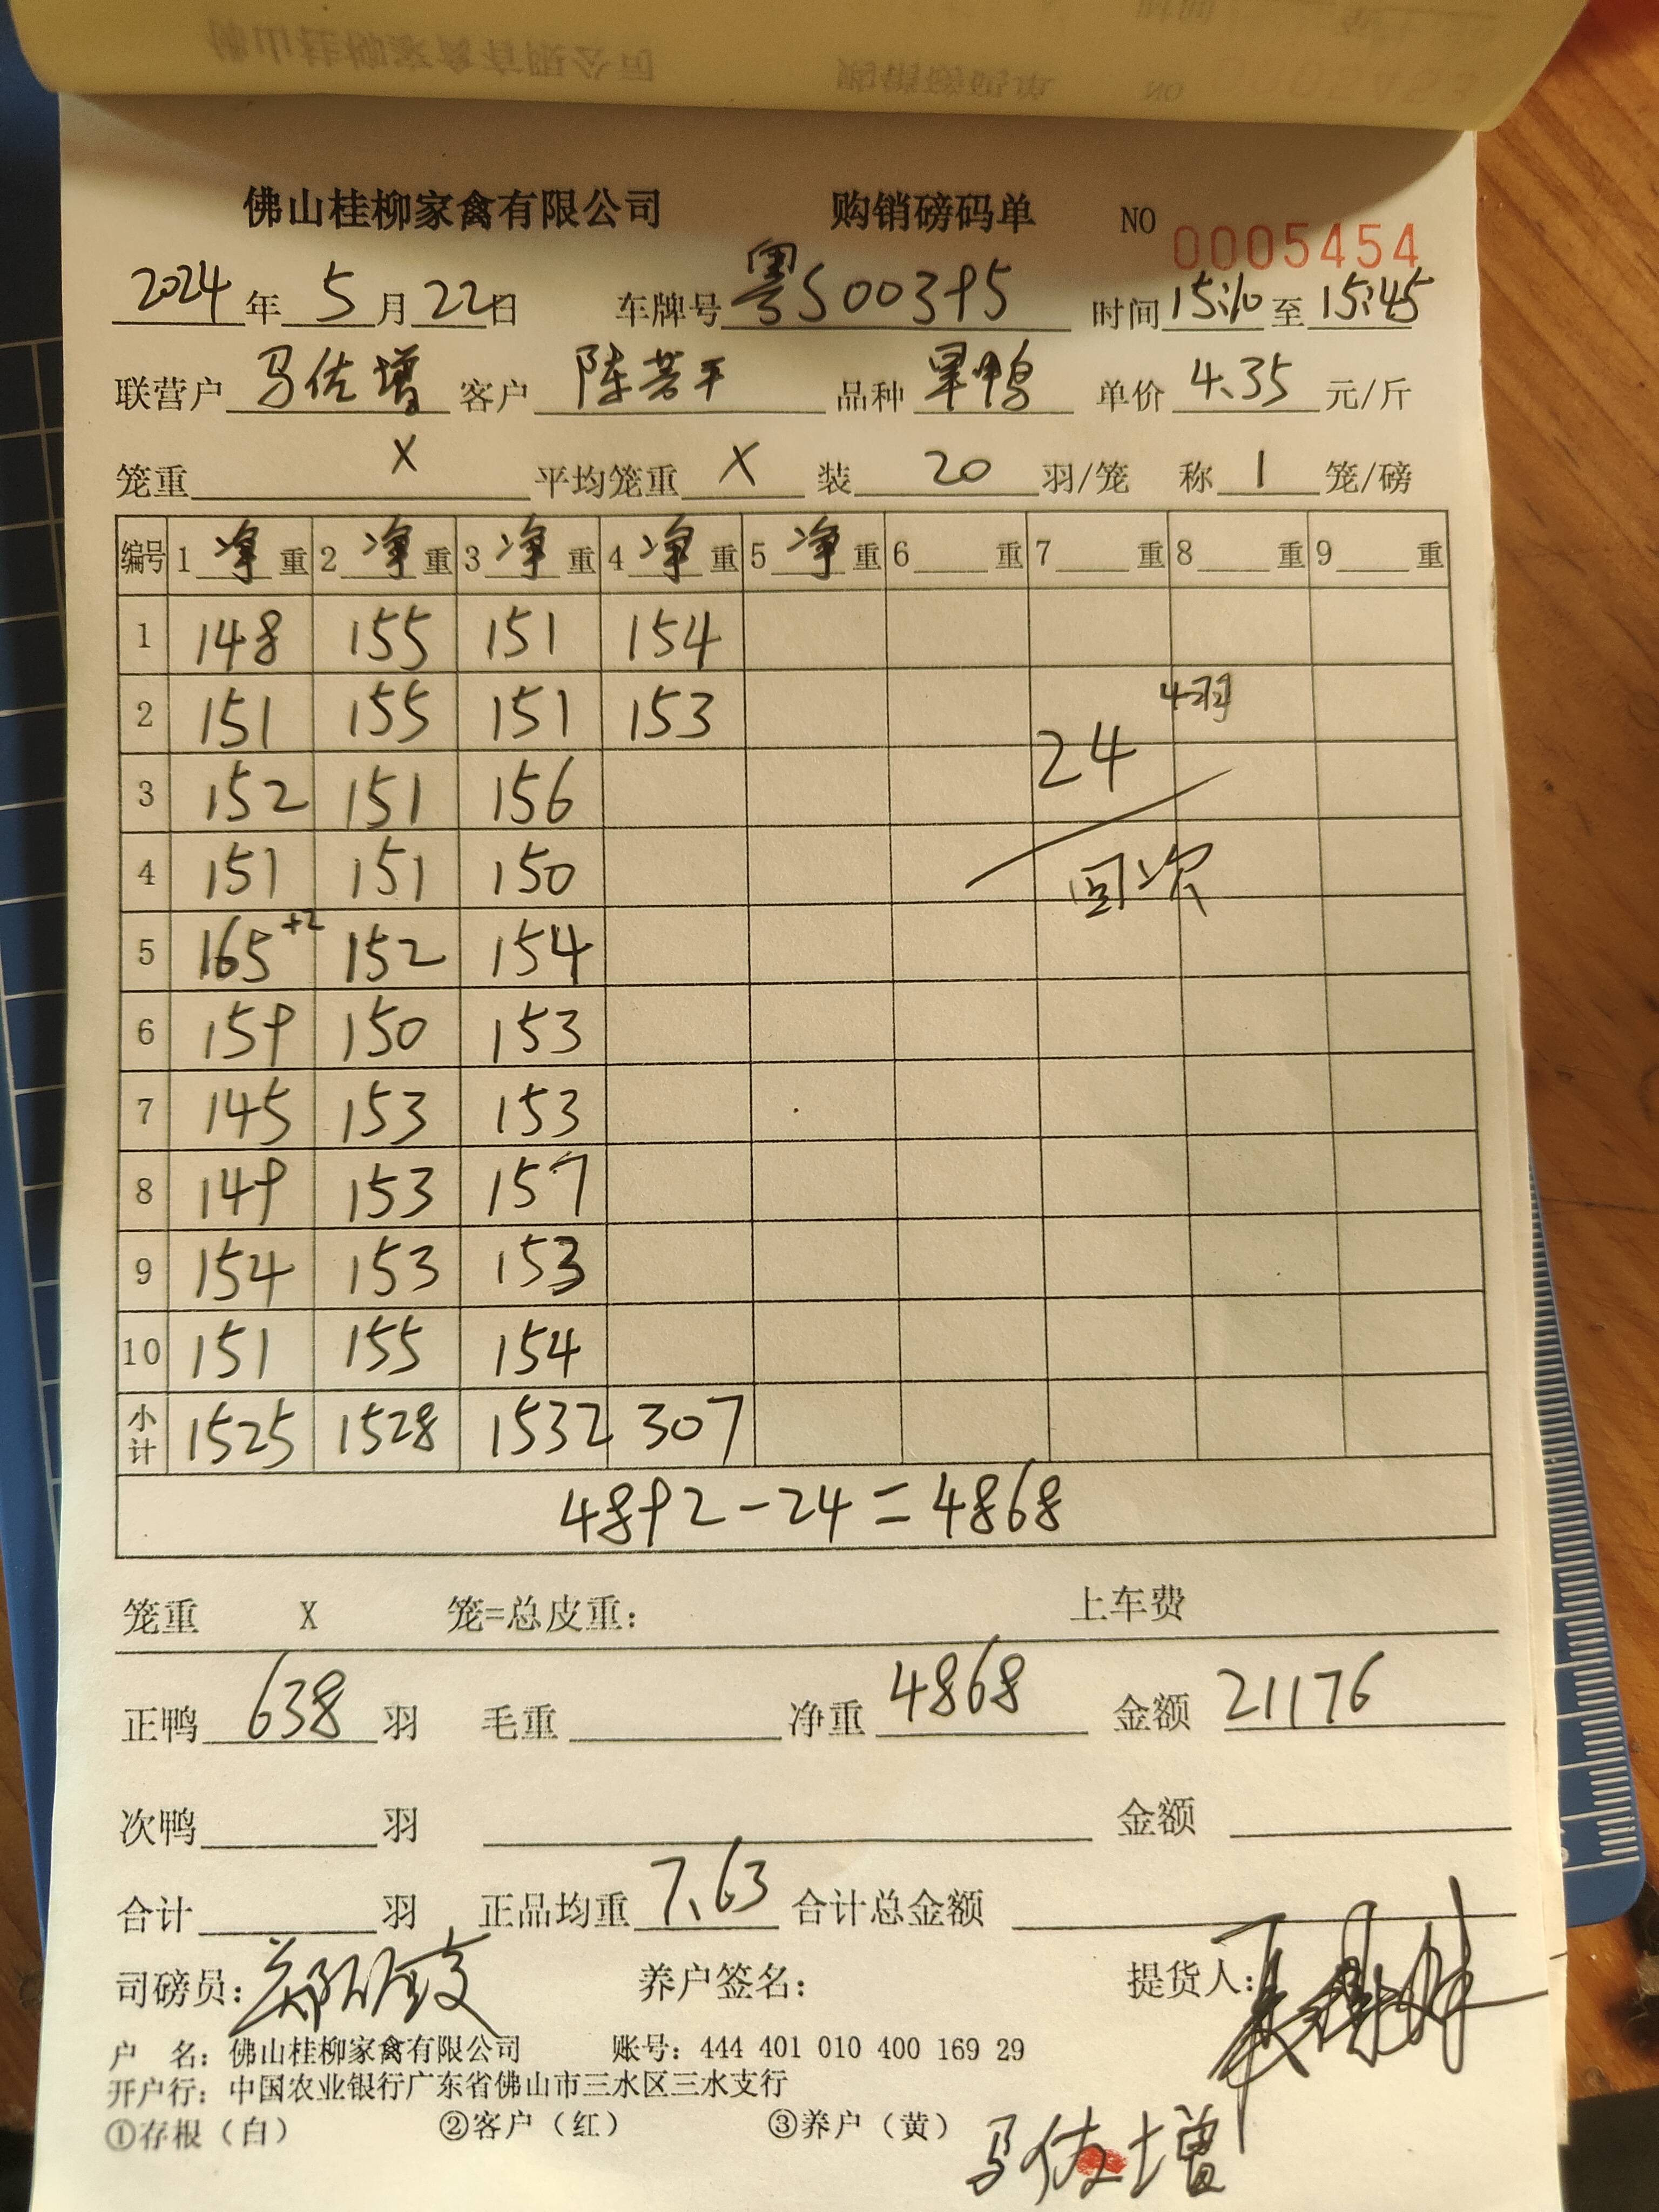 佛山桂柳家禽有限公司 购销磅码单 NO 0005454
2024年5月22日 车牌号粤S00395 时间15:10至15:45
联营户马佐增 客户 陈若平 品种旱鸭 单价4.35元/斤
笼重 X 平均笼重 X 装20羽/笼 称1笼/磅
编号 1净重 2净重 3净重 4净重 5净重 6重 7重 8重 9重
1 148 155 151 154
2 151 155 151 153
4羽
24
3 152 151 156
4 151 151 150
回次
5 165+2 152 154
6 159 150 153
7 145 153 153
8 149 153 157
9 154 153 153
10 151 155 154
小计 1525 1528 1532 307
4892-24=4868
笼重 X 笼=总皮重: 上车费
正鸭638羽 毛重 净重4868 金额21176
次鸭 羽 金额
合计 羽 正品均重7.63 合计总金额
司磅员: 养户签名: 提货人:
户 名: 佛山桂柳家禽有限公司 账号: 444 401 010 400 169 29
开户行: 中国农业银行广东省佛山市三水区三水支行
①存根（白） ②客户（红） ③养户（黄）
马佐增